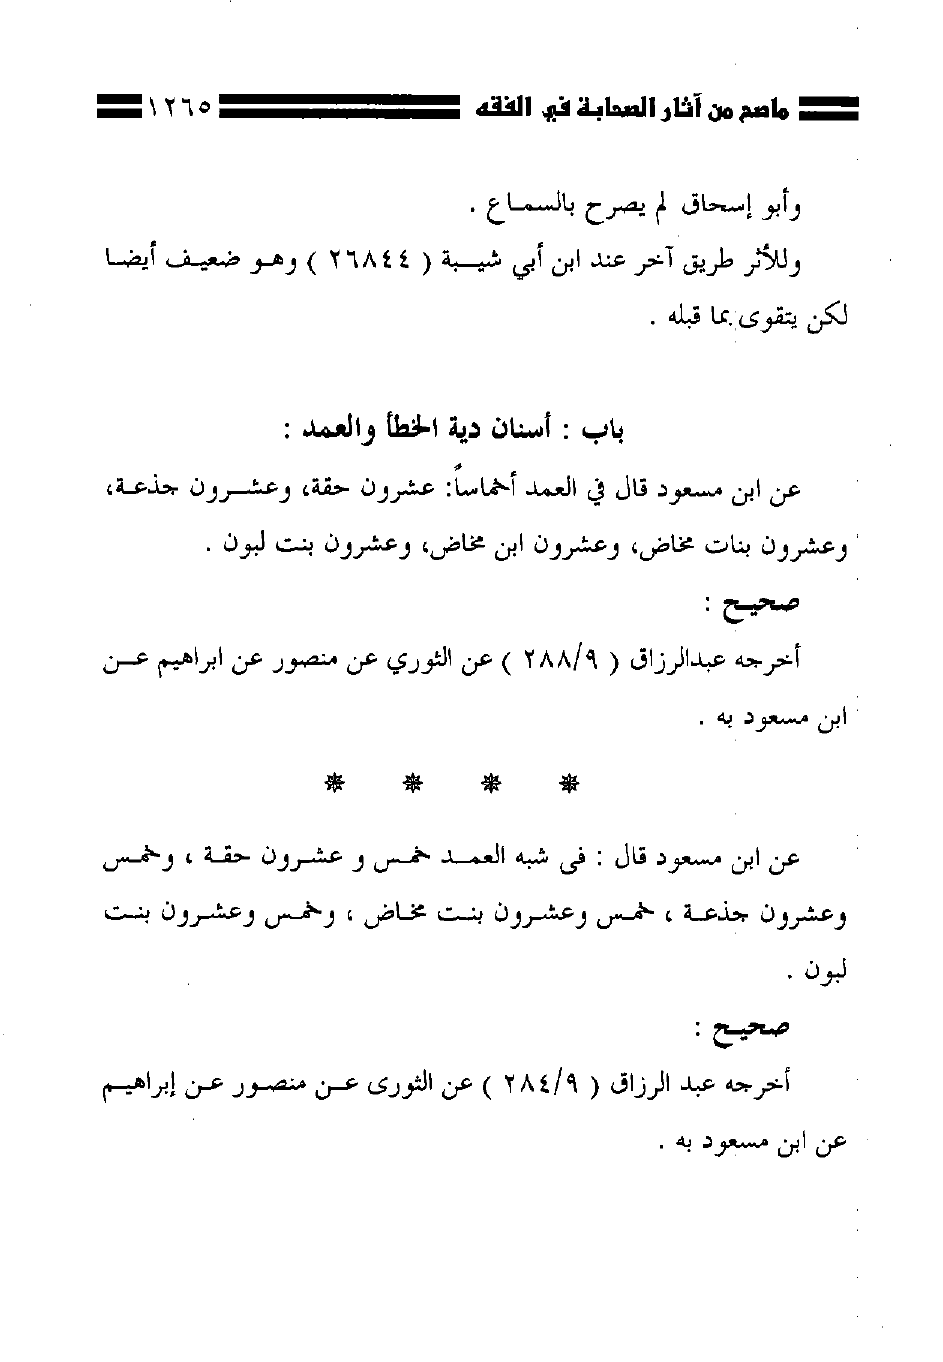 ماصح من آثار الصحابة في الفقه ١٢٦٥
وأبو إسحاق لم يصرح بالسماع .
وللأثر طريق آخر عند ابن أبي شيبة ( ٢٦٨٤٤ ) وهو ضعيف أيضا
لكن يتقوى بما قبله .
باب : أسنان دية الخطأ والعمد :
عن ابن مسعود قال في العمد أخماساً: عشرون حقة، وعشرون جذعة،
وعشرون بنات مخاض، وعشرون ابن مخاض، وعشرون بنت لبون .
صحيح :
أخرجه عبدالرزاق ( ٢٨٨/٩ ) عن الثوري عن منصور عن ابراهيم عن
ابن مسعود به .
عن ابن مسعود قال : فى شبه العمد خمس و عشرون حقة ، وخمس
وعشرون جذعة ، خمس وعشرون بنت مخاض ، وخمس وعشرون بنت
لبون .
صحيح :
أخرجه عبد الرزاق ( ٢٨٤/٩ ) عن الثورى عن منصور عن إبراهيم
عن ابن مسعود به .